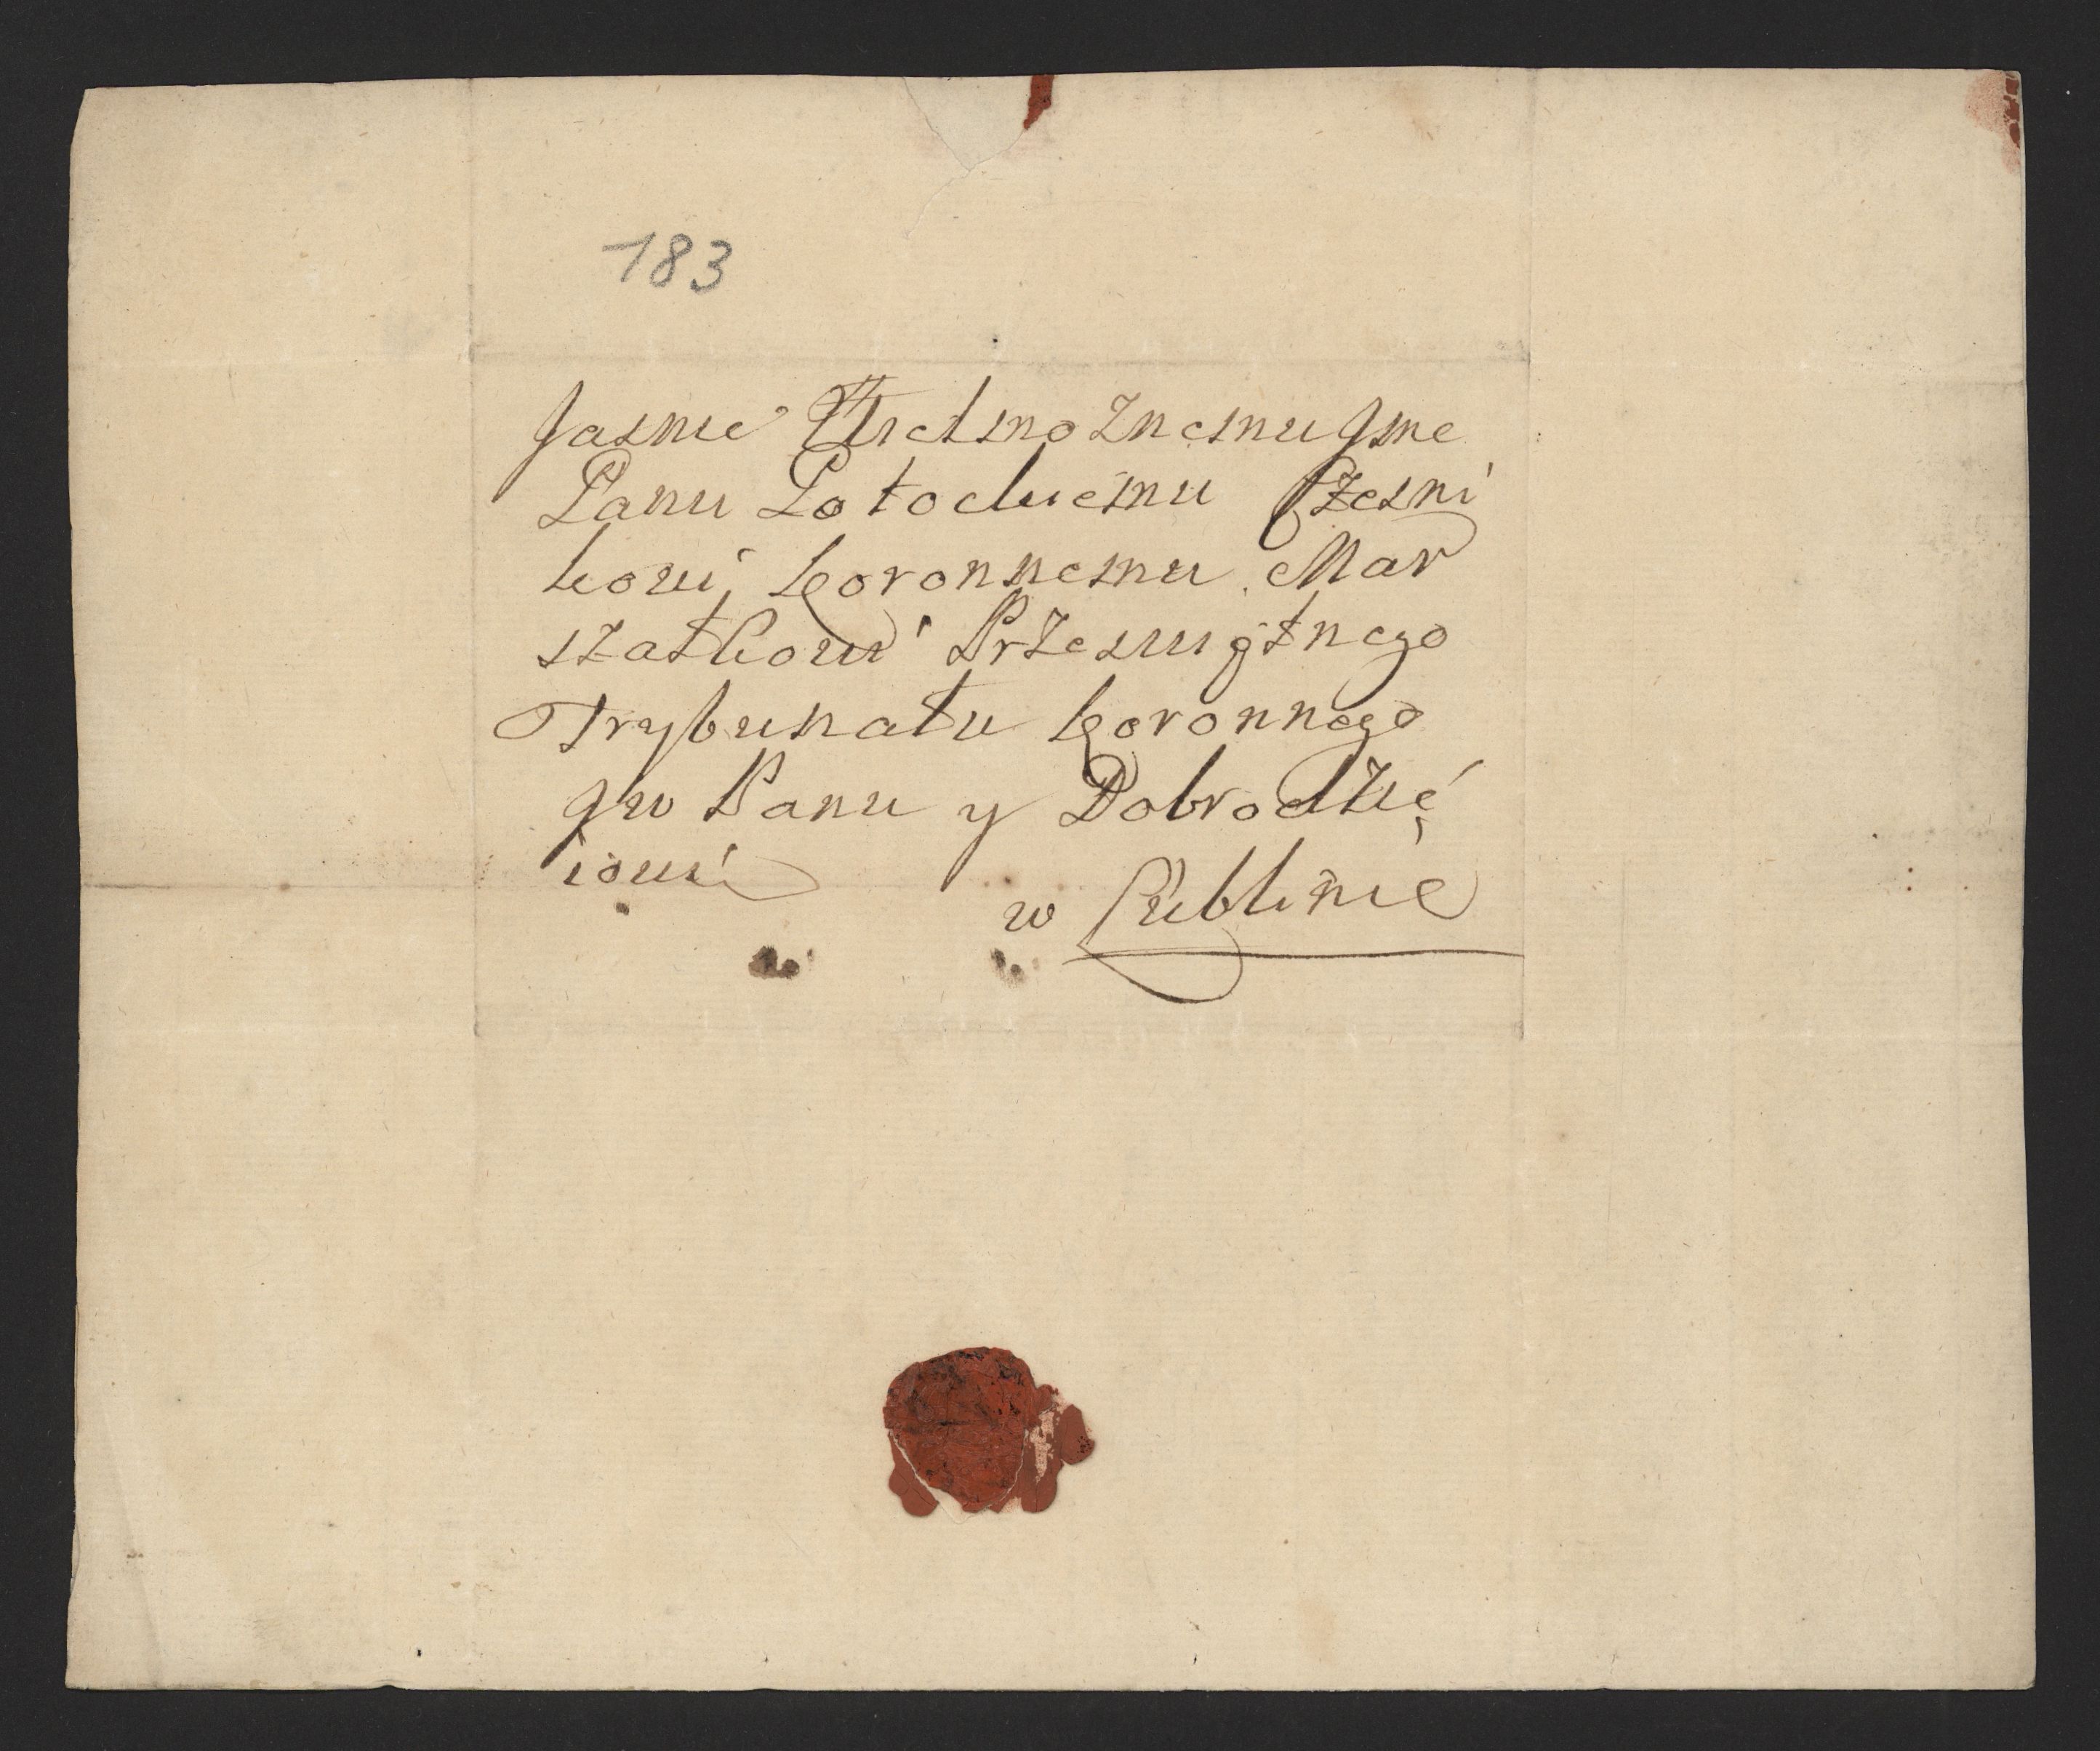 183
Jasnie Wielmoznemu Jme
Panu Potockiemu Czesni
kowi koronnemu Mar
szałkowi Przeświętnego
Trybunału koronnego
JW Panu y Dobrodzie
iowi
w Lublinie